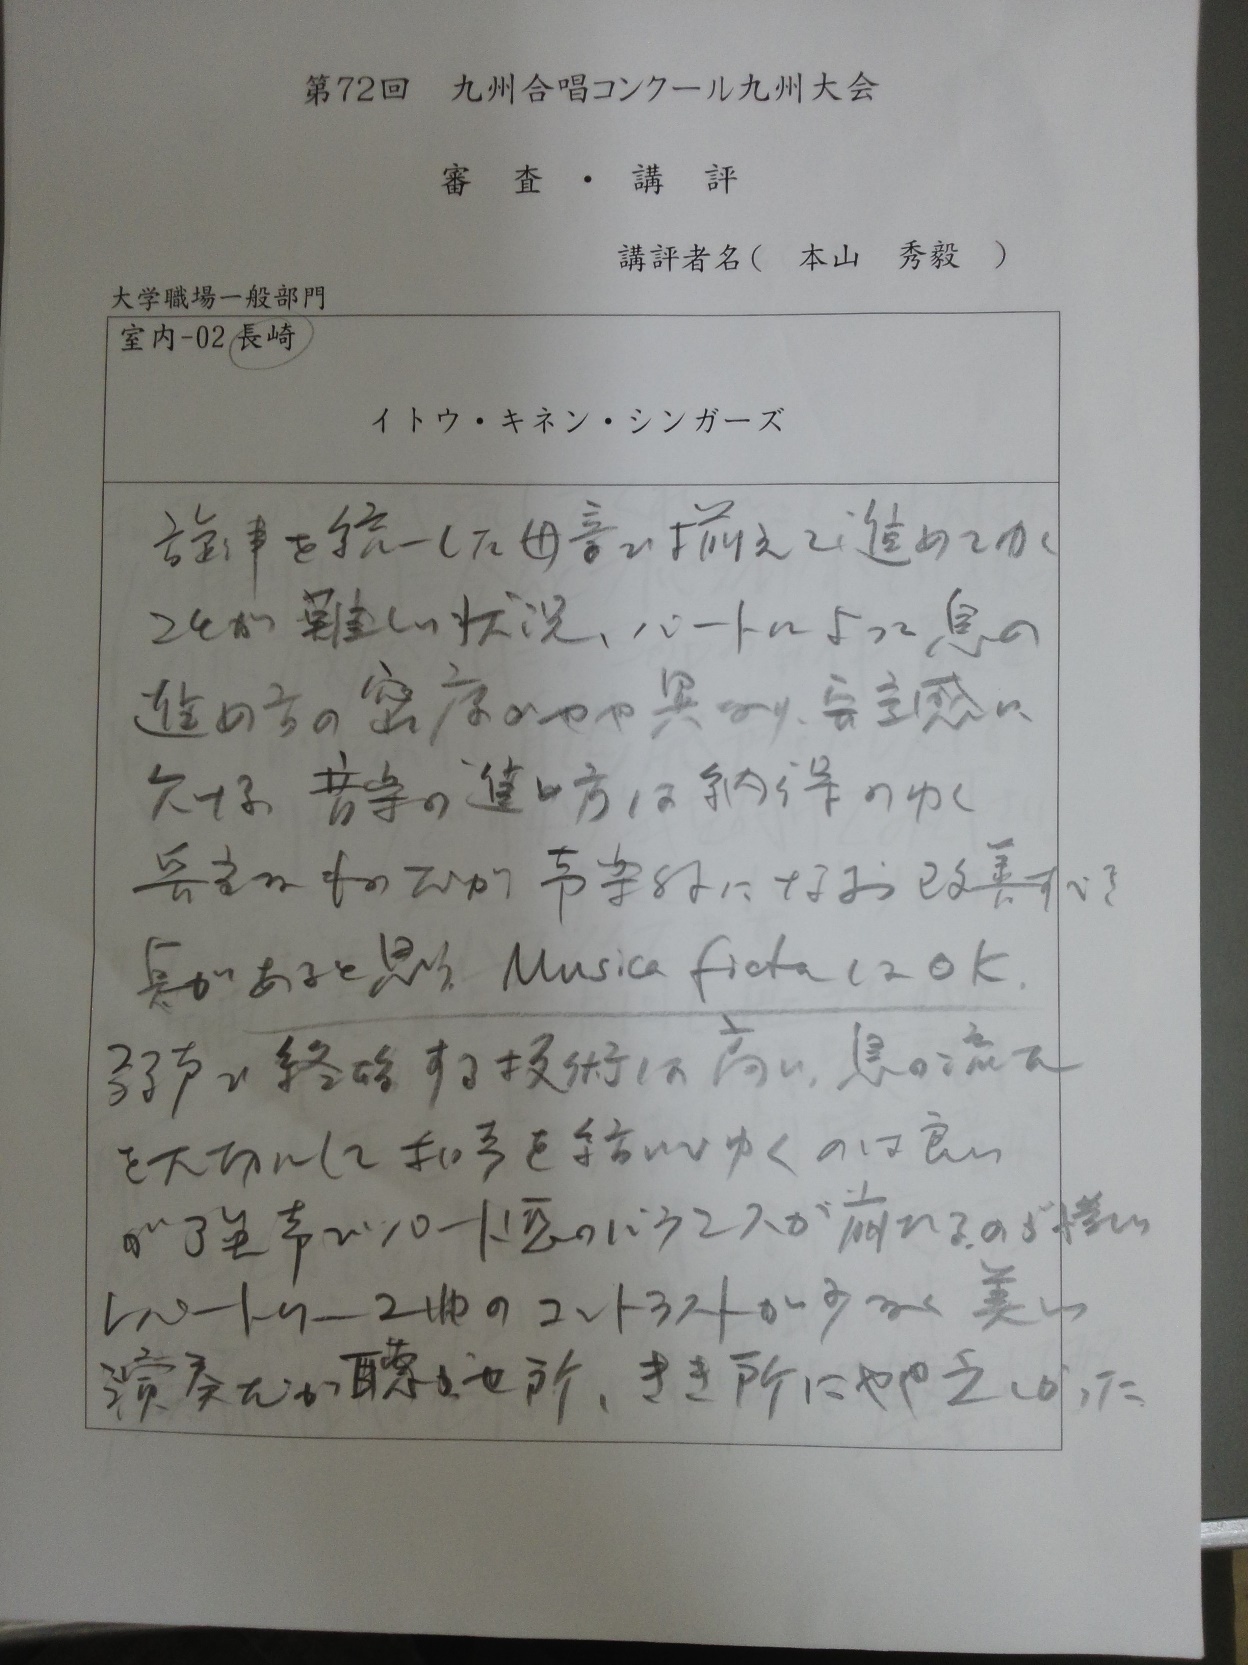 第72回　九州合唱コンクール九州大会
審　査　・　講　評
講評者名（　本山　秀毅　）
大学職場一般部門
室内-02 長崎
イトウ・キネン・シンガーズ
旋律を統一した母音で揃えて進めてゆく
ことが難しい状況、パートによって息の
進め方の密度がやや異なり、安定感に
欠ける。音楽の進め方は納得のゆく
安定したものだが声楽的になお改善すべき
点があると思う。Musica fictaはOK.
弱声で終始する技術は高い、息の流れ
を大切にして和声を紡いでゆくのは良い
が強声でパート間のバランスが崩れるのが惜しい
レパートリー2曲のコントラストが少なく美しい
演奏だが聴かせ所、きき所にやや乏しかった